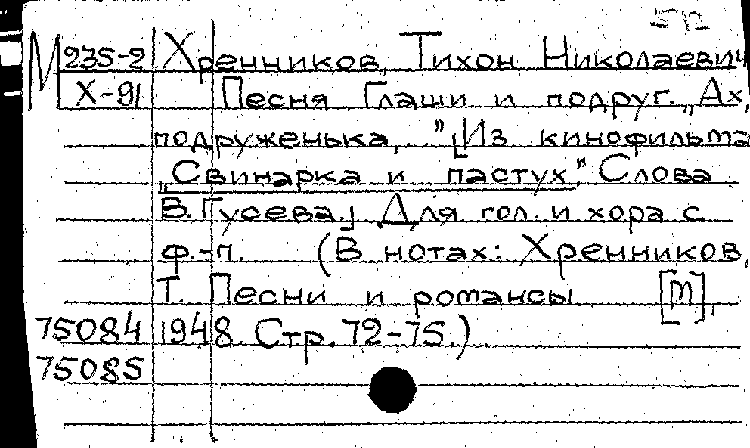 М 235-2 Хренников, Тихон Николаевич
Х-91 Песня Глаши и подруг. „Ах,
подруженька," [Из кинофильма
„Свинарка и пастух." Слова
В. Гусева.] Для гол. и хора с
ф.-п. (В нотах: Хренников,
Т. Песни и романсы [М],
75084 1948 Стр. 72-75.)
75085